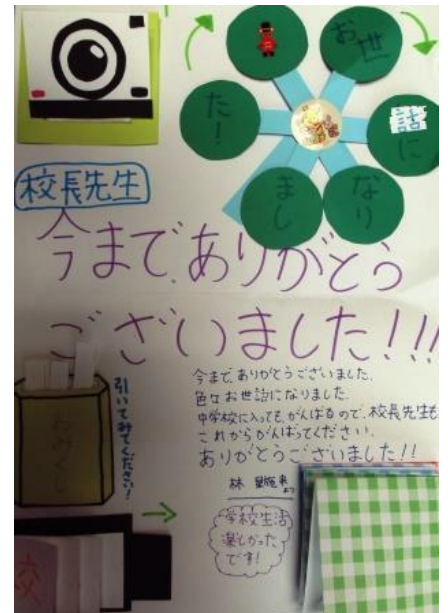 お世
話に
なり
まし
た!
校長先生
今までありがとう
ございました!!!
おみくじ
引いてみてください!
今まで、ありがとうございました。
色々お世話になりました。
中学校に入っても、がんばるので、校長先生も
これからがんばってください。
ありがとうございました!!
林
より
学校生活
楽しかった
です!
校